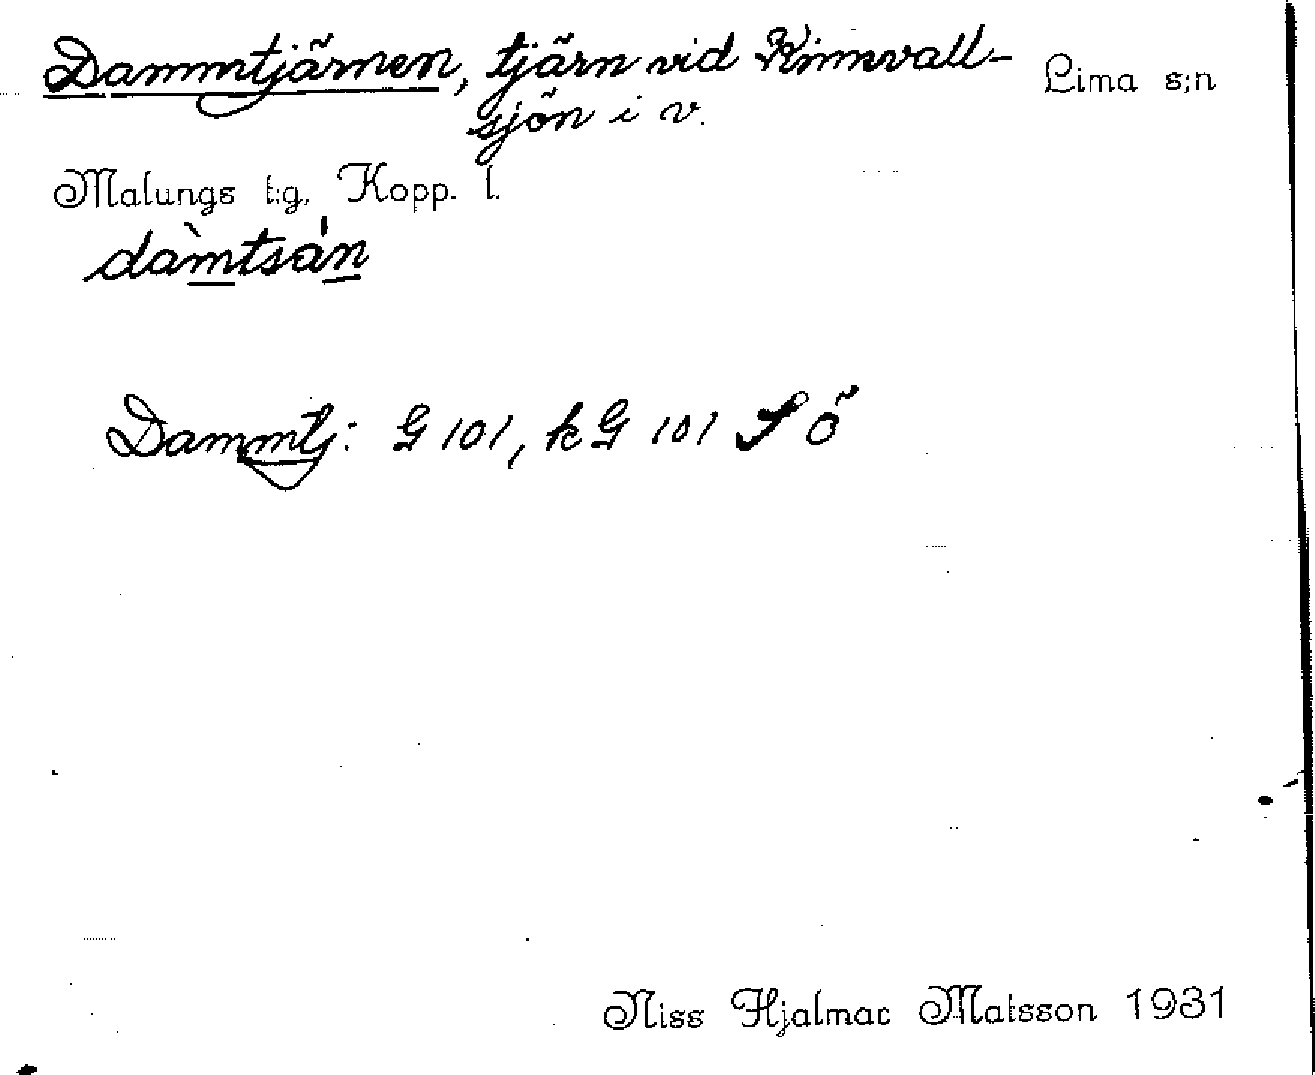 Dammtjärnen, tjärn vid Kinnvall- Lima s:n
sjön i v.
Malungs t:g. Kopp. l.
dàmtsán
Dammtj: G 101, kG 101 SÖ
Niss Hjalmar Matsson 1931